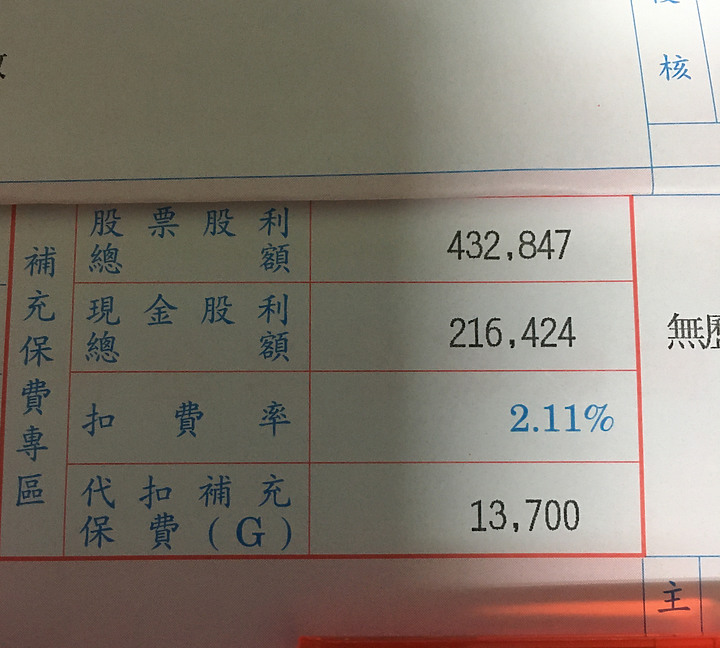 核
補充保費專區
股票股利
總額
432,847
現金股利
總額
216,424
無
扣費率
2.11%
代扣補充
保費(G)
13,700
主